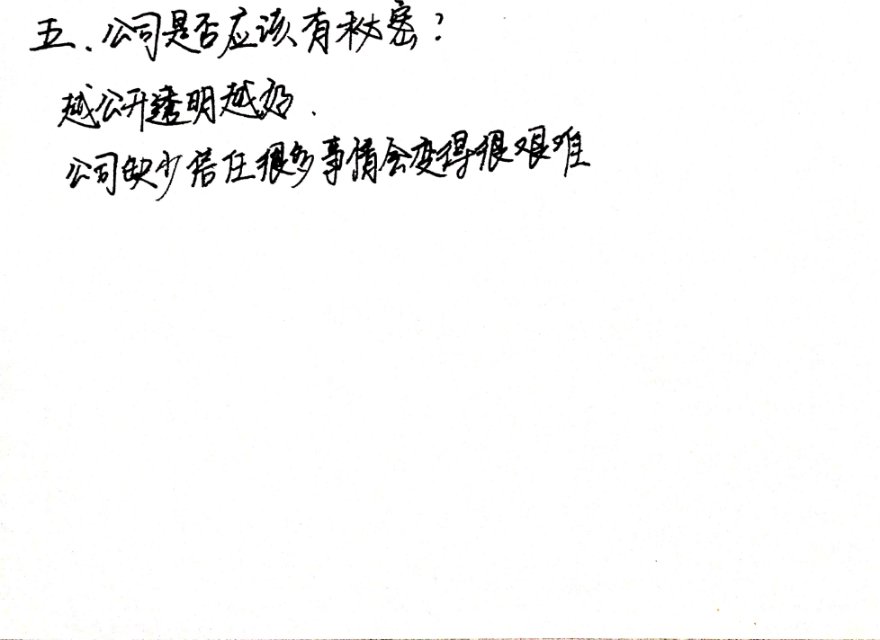 五、公司是否应该有秘密?
越公开透明越好.
公司缺少信任很多事情会变得很艰难